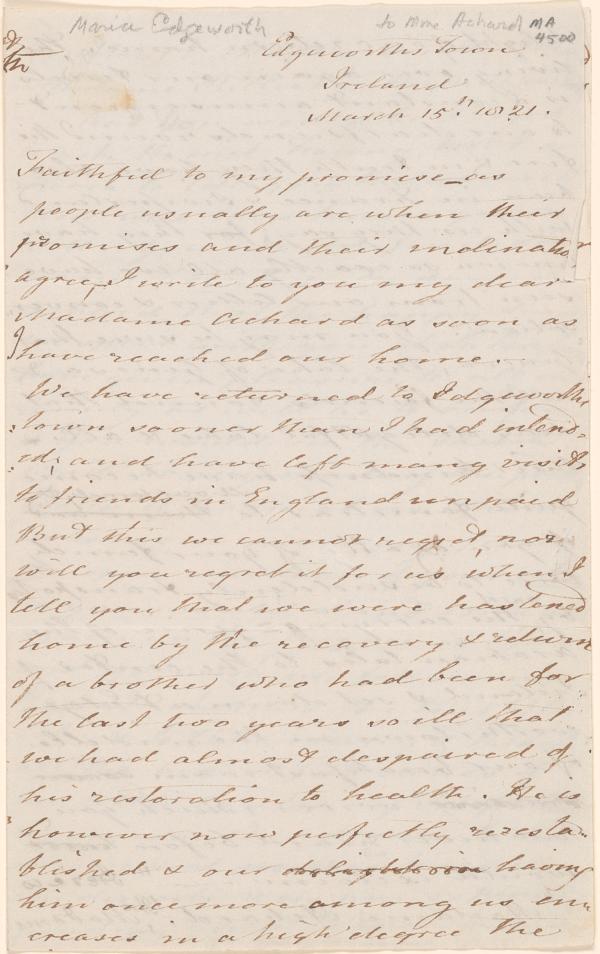 Maria Edgeworth
to Mme Achard MA
4500
Edgeworths Town
Ireland
March 15th. 1821.
Faithful to my promise – as
people usually are when their
promises and their inclinatio
agree, I write to you my dear
Madame Achard as soon as
I have reached our home. –
We have returned to Edgeworths
Town sooner than I had intend-
ed; and have left many visits
to friends in England unpaid
But this we cannot regret, nor
will you regret it for us when I
tell you that we were hastened
home by the recovery & return
of a brother who had been for
the last two years so ill that
we had almost despaired of
his restoration to health. He is
however now perfectly reesta-
blished & our having
him once more among us en-
creases in a high degree the